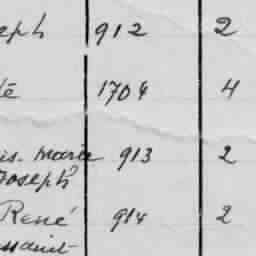 eph 912 2
1704 4
is. Marie 913 2
Joseph
René 914 2